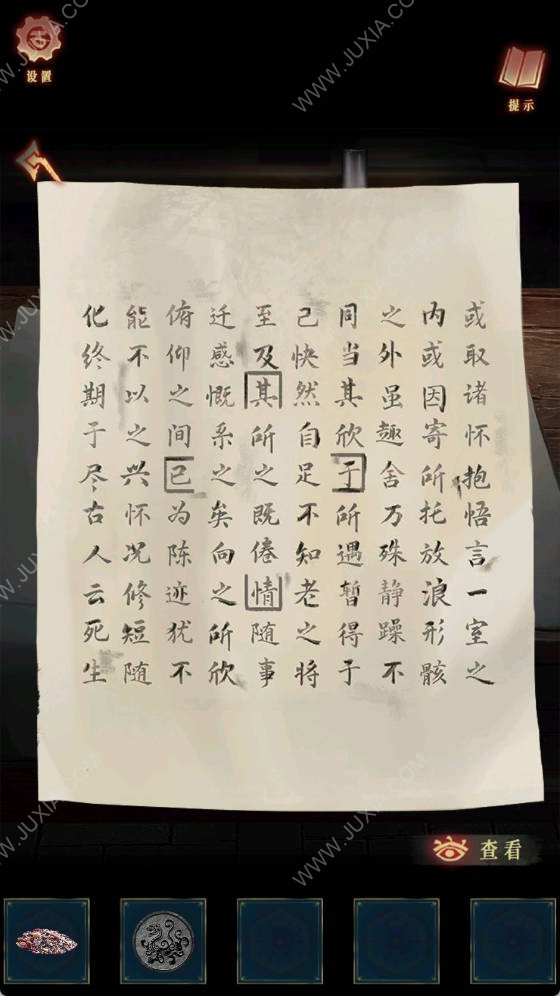 设置
提示
或取诸怀抱悟言一室之
内或因寄所托放浪形骸
之外虽趣舍万殊静躁不
同当其欣于所遇暂得于
己快然自足不知老之将
至及其所之既倦情随事
迁感慨系之矣向之所欣
俯仰之间已为陈迹犹不
能不以之兴怀况修短随
化终期于尽古人云死生
查看
WWW.JUXIA.COM